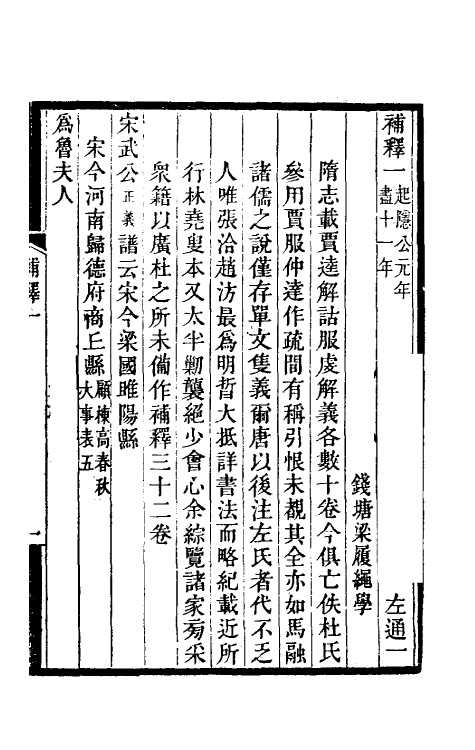 補釋一起隱公元年盡十一年
左通一
錢塘梁履繩學
隋志載賈逵解詁服虔解義各數十卷今俱亡佚杜氏
參用賈服仲達作疏間有稱引恨未覩其全亦如馬融
諸儒之說僅存單文隻義爾唐以後注左氏者代不乏
人唯張洽趙汸最爲明晢大抵詳書法而略紀載近所
行林堯叟本又太半勦襲絕少會心余綜覽諸家芴采
衆籍以廣杜之所未備作補釋三十二卷
宋武公正義譜云宋今梁國睢陽縣
宋今河南歸德府商丘縣顧棟高春秋大事表五
爲魯夫人
補釋一
一